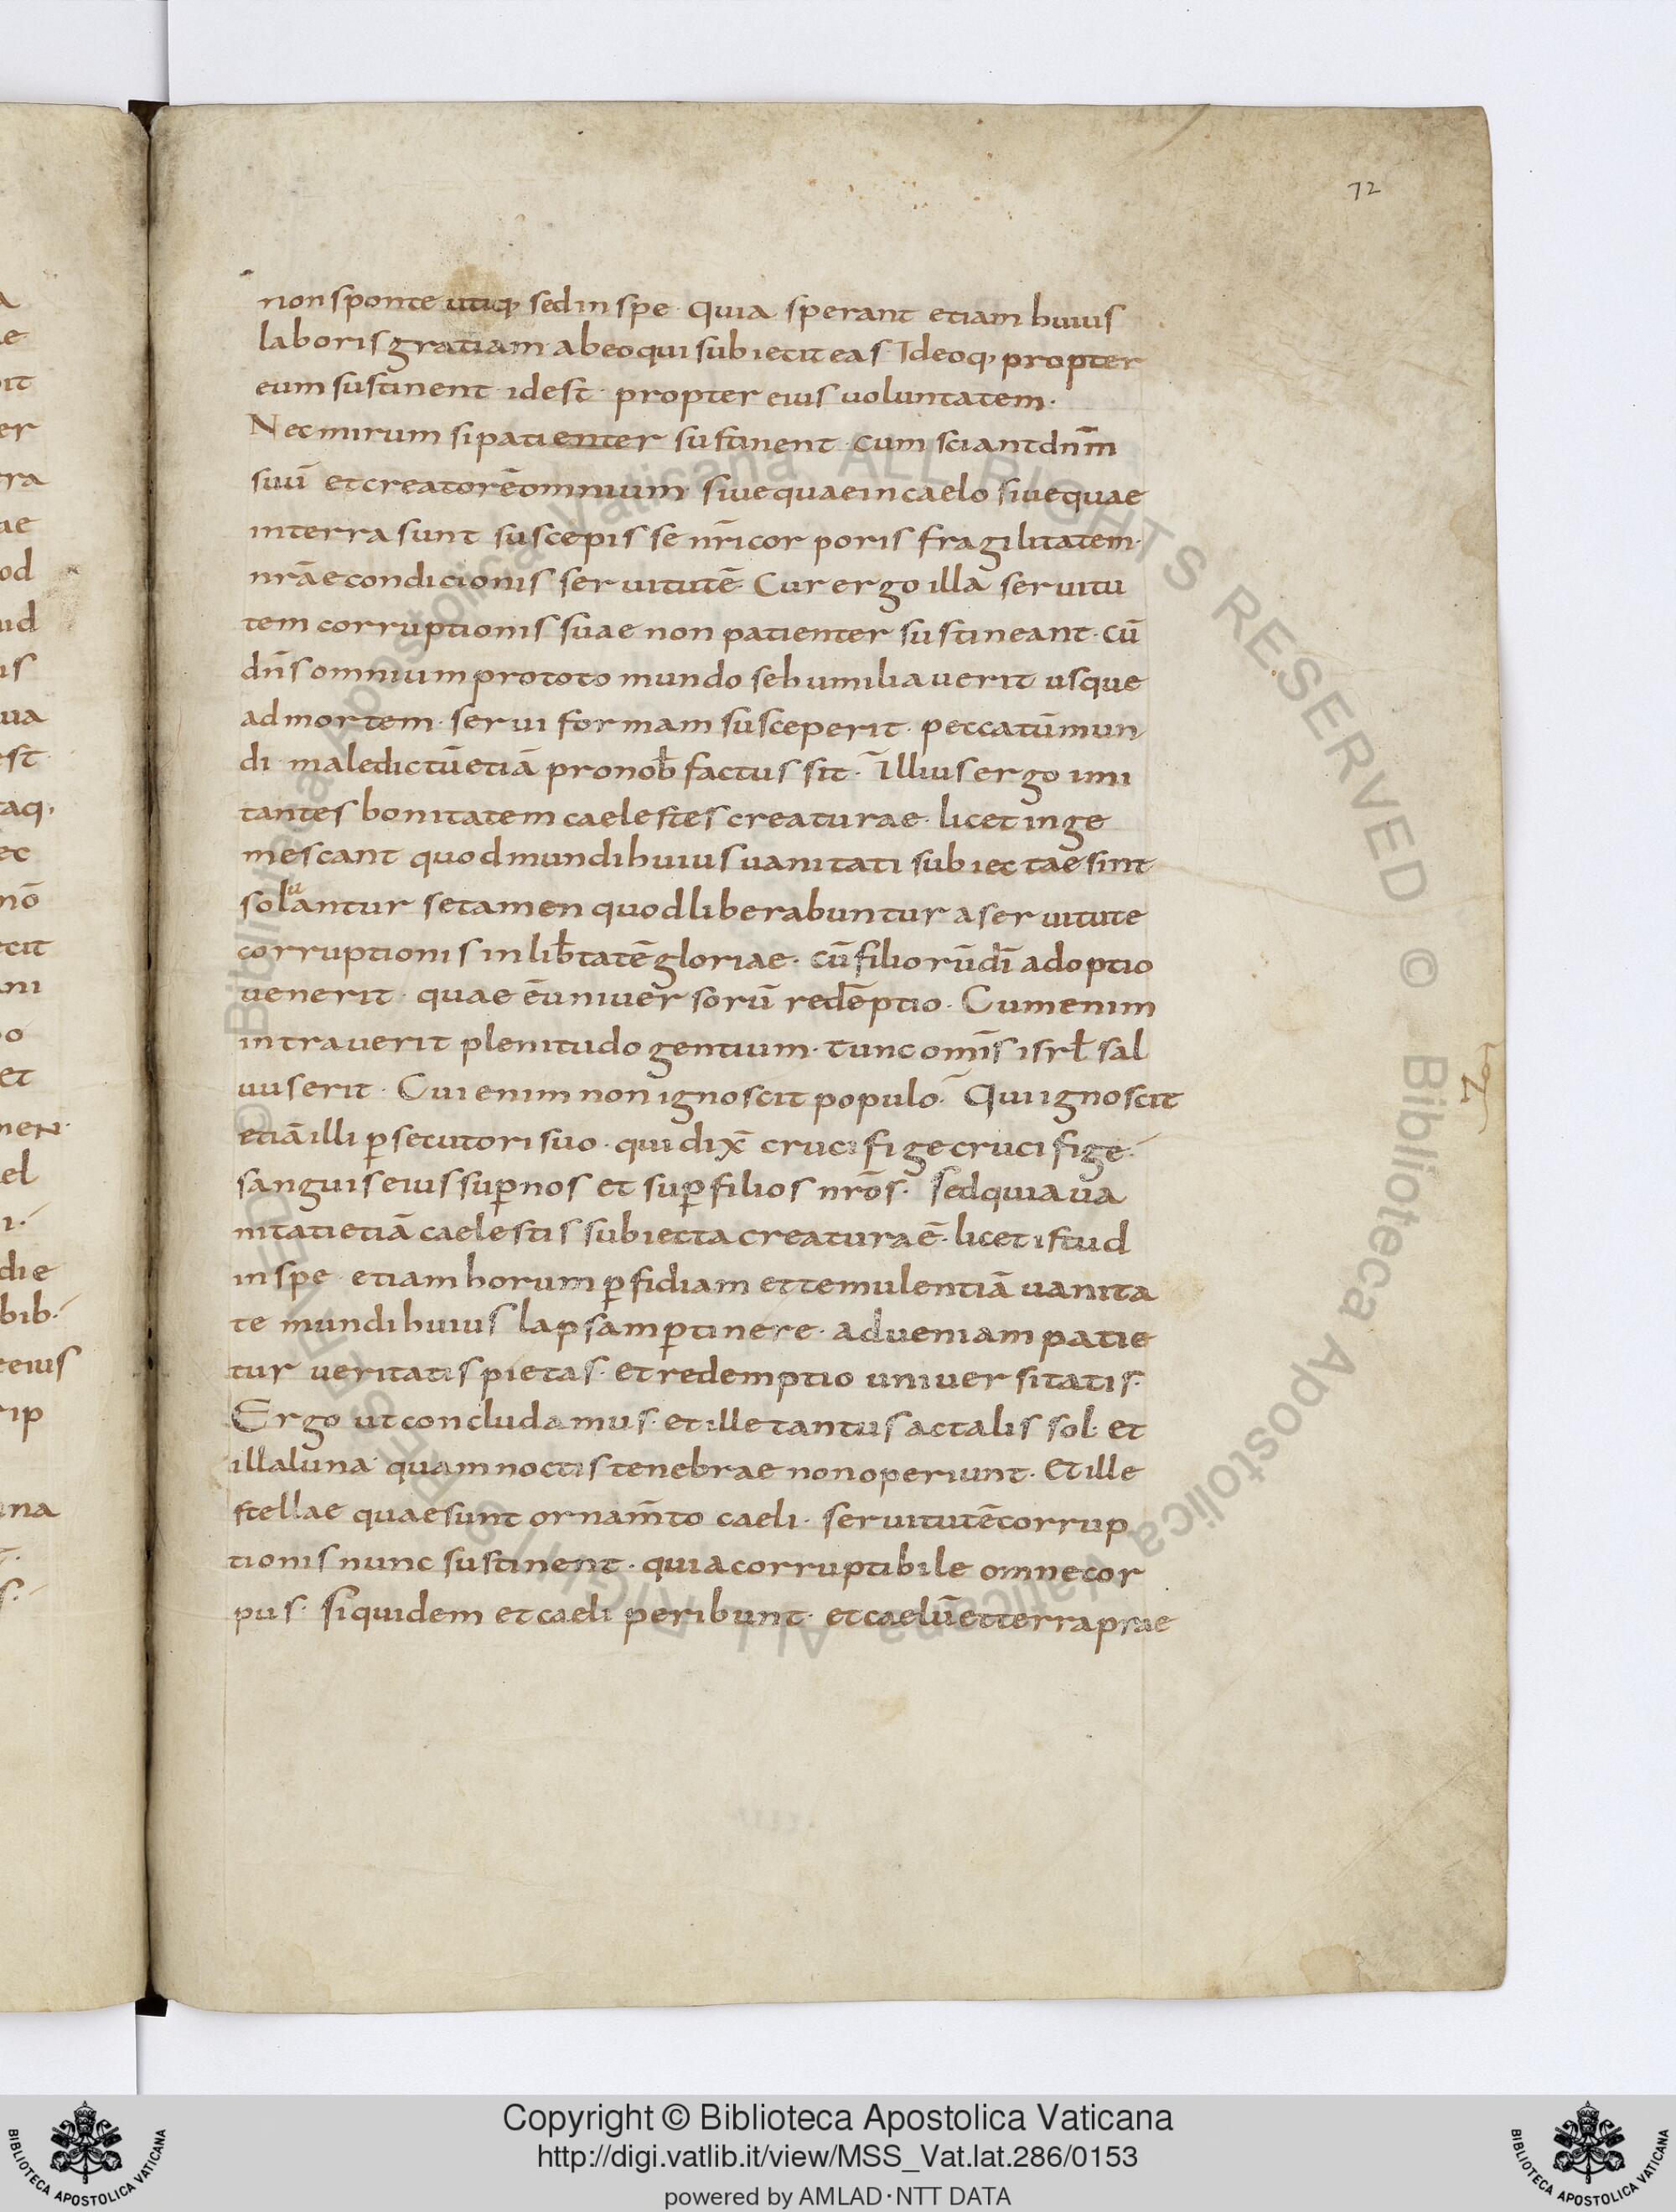 72
non sponte utiq, sed in spe · quia sperant etiam huius
laboris gratiam ab eo qui subiecit eas · Ideoq, propter
eum sustinent · id est · propter eius uoluntatem ·
Nec mirum si patienter sustinent · cum sciant dnm̄
suū et creatorē omnium siue quae in caelo siue quae
in terra sunt suscepisse nr̄i corporis fragilitatem ·
nrāe condicionis seruitutē · Cur ergo illa seruitu
tem corruptionis suae non patienter sustineant · cū
dn̄s omnium pro toto mundo se humiliauerit usque
ad mortem · serui formam susceperit · peccatū mun
di maledictū etiā pro nob̄ factus sit · Illius ergo imi
tantes bonitatem caelestes creaturae · licet inge
mescant quod mundi huius uanitati subiectae sint
soluantur se tamen quod liberabuntur a seruitute
corruptionis in lib̄tatē gloriae · cū filiorū dī adoptio
uenerit · quae ē uniuersorū redēptio · Cum enim
intrauerit plenitudo gentium · tunc omīs isrł sal
uus erit · Cui enim non ignoscit populo · Qui ignoscit
etiā illi p̱secutori suo · qui dix̄ crucifige crucifige ·
sanguis eius sup̱ nos et sup̱ filios nrōs · Sed quia ua
nitati etiā caelestis subiecta creatura ē · licet istud
in spe · etiam horum p̱fidiam et temulentiā uanita
te mundi huius lapsam p̱tinere · ad ueniam patie
tur ueritatis pietas · et redemptio uniuersitatis ·
Ergo ut concludamus · et ille tantus ac talis sol · et
illa luna quam noctis tenebrae non operiunt · et ille
stellae quae sunt ornam̄to caeli · seruitutē corrup
tionis nunc sustinent · quia corruptibile omne cor
pus · siquidem et caeli peribunt · et caelū et terra prae
Copyright © Biblioteca Apostolica Vaticana
http://digi.vatlib.it/view/MSS_Vat.lat.286/0153
powered by AMLAD·NTT DATA